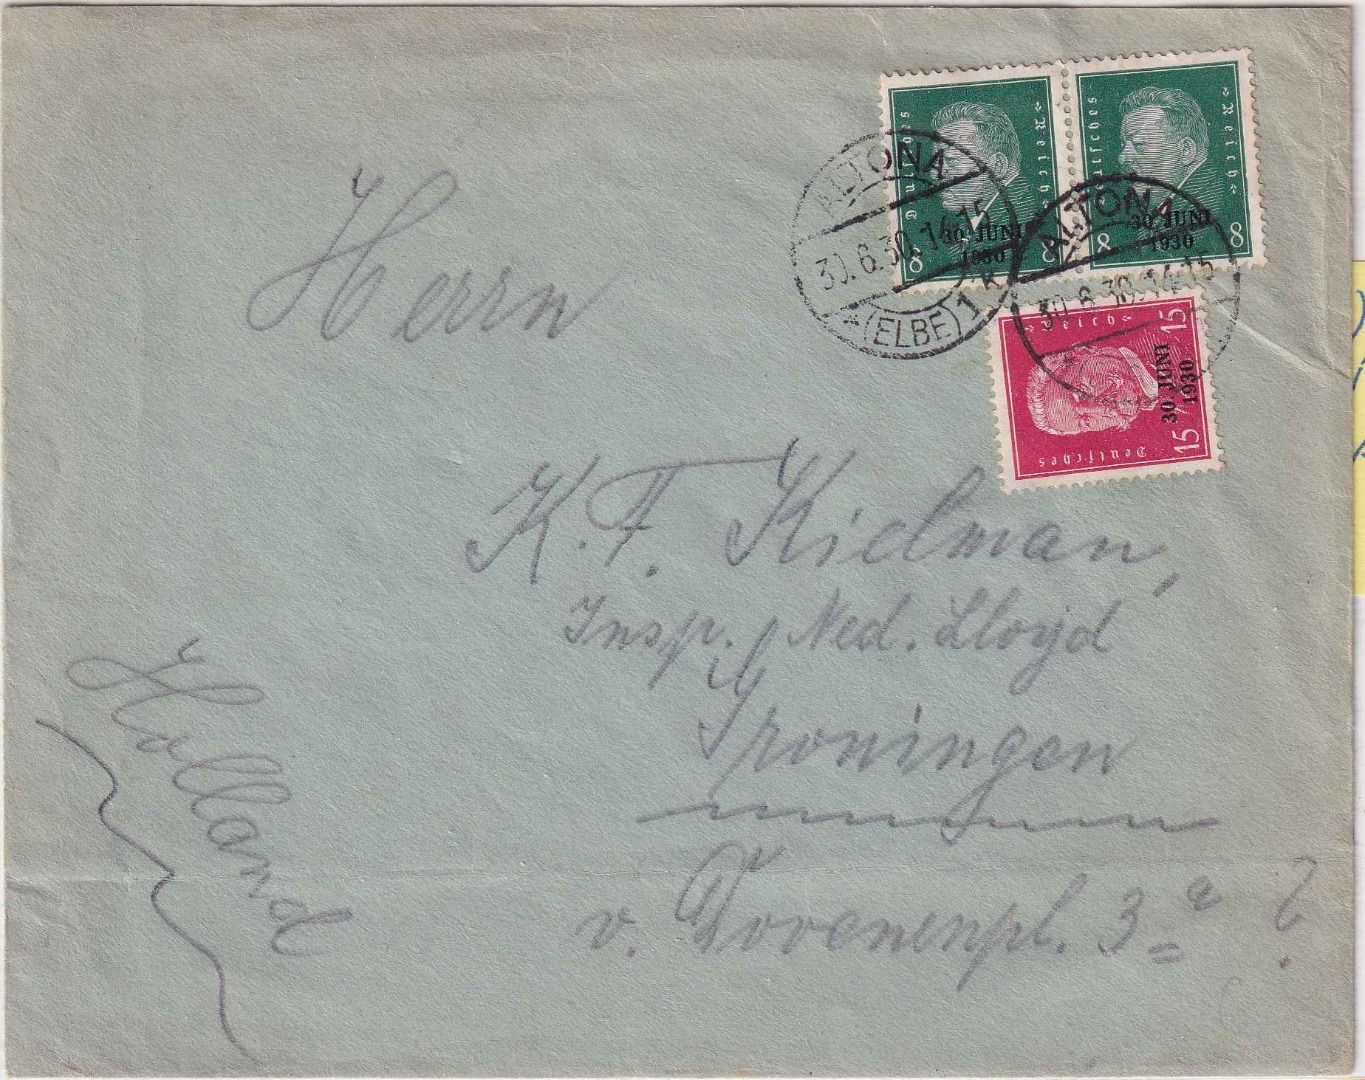 Deutsches Reich
8 8
30. JUNI
1930
Deutsches Reich
8 8
30. JUNI
1930
ALTONA
30.6.30.14-15
* (ELBE) 1 k
ALTONA
30.6.30.14-15
Deutsches Reich
15 15
30. JUNI
1930
Herrn
K. F. Kielman,
Insp. Ned. Lloyd
Groningen
v. 3a ?
Holland